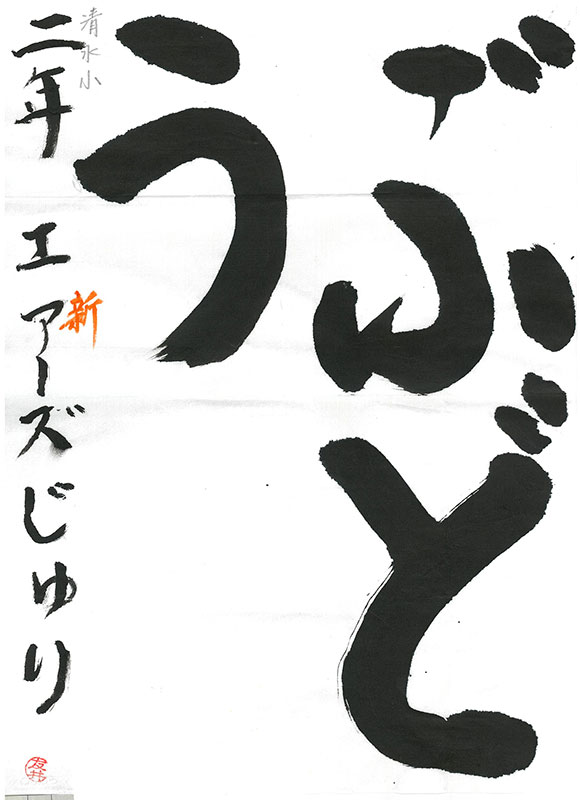 ぶど
う
清水小
二年 エアーズじゅり
新